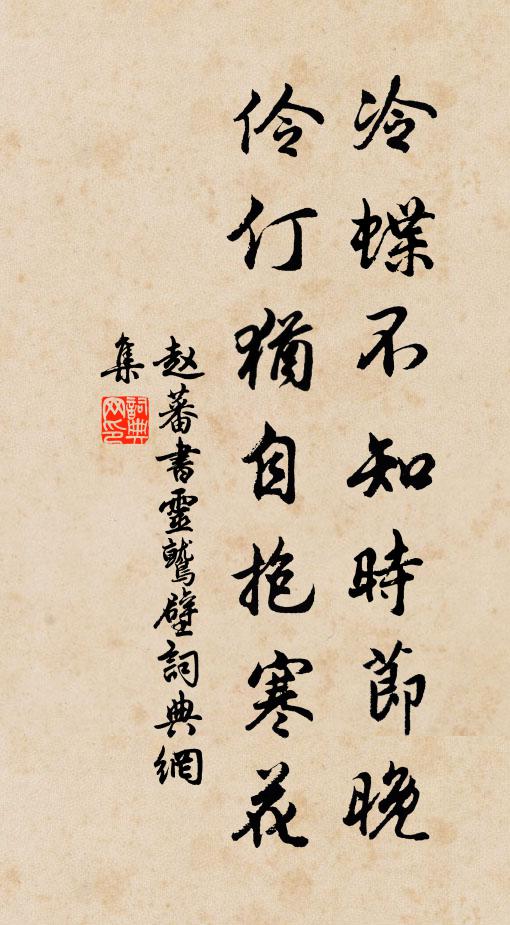 冷蝶不知時節晚
伶仃猶自抱寒花
赵蕃書靈鷲壁詞典網
集
詞典
网印